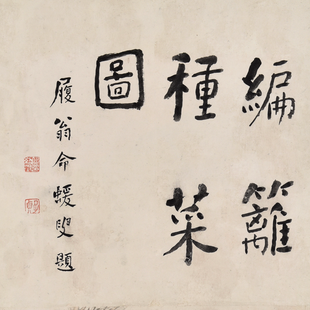 編籬
種菜
圖
履翁命蝯叟題